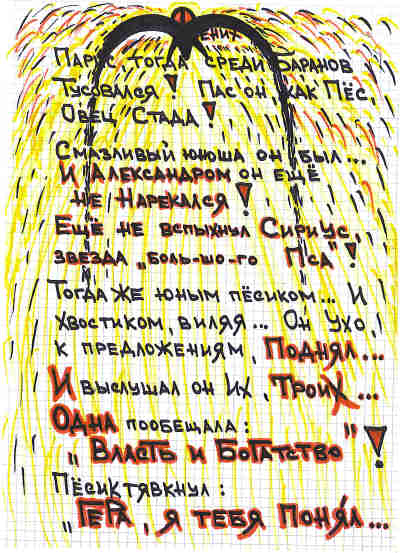 Парис тогда среди Баранов
Тусовался! Пас он, как Пёс,
Овец Стада!
Смазливый юноша он был...
И Александром он ещё
не Нарекался!
Ещё не вспыхнул Сириус,
звезда „Боль-шо-го Пса"!
Тогда же юным пёсиком... и
хвостиком, виляя... Он Ухо,
к предложениям, Поднял...
И выслушал он Их, Троих...
Одна пообещала:
„Власть и Богатство"!
Пёсик тявкнул:
„Гера, я тебя Понял...